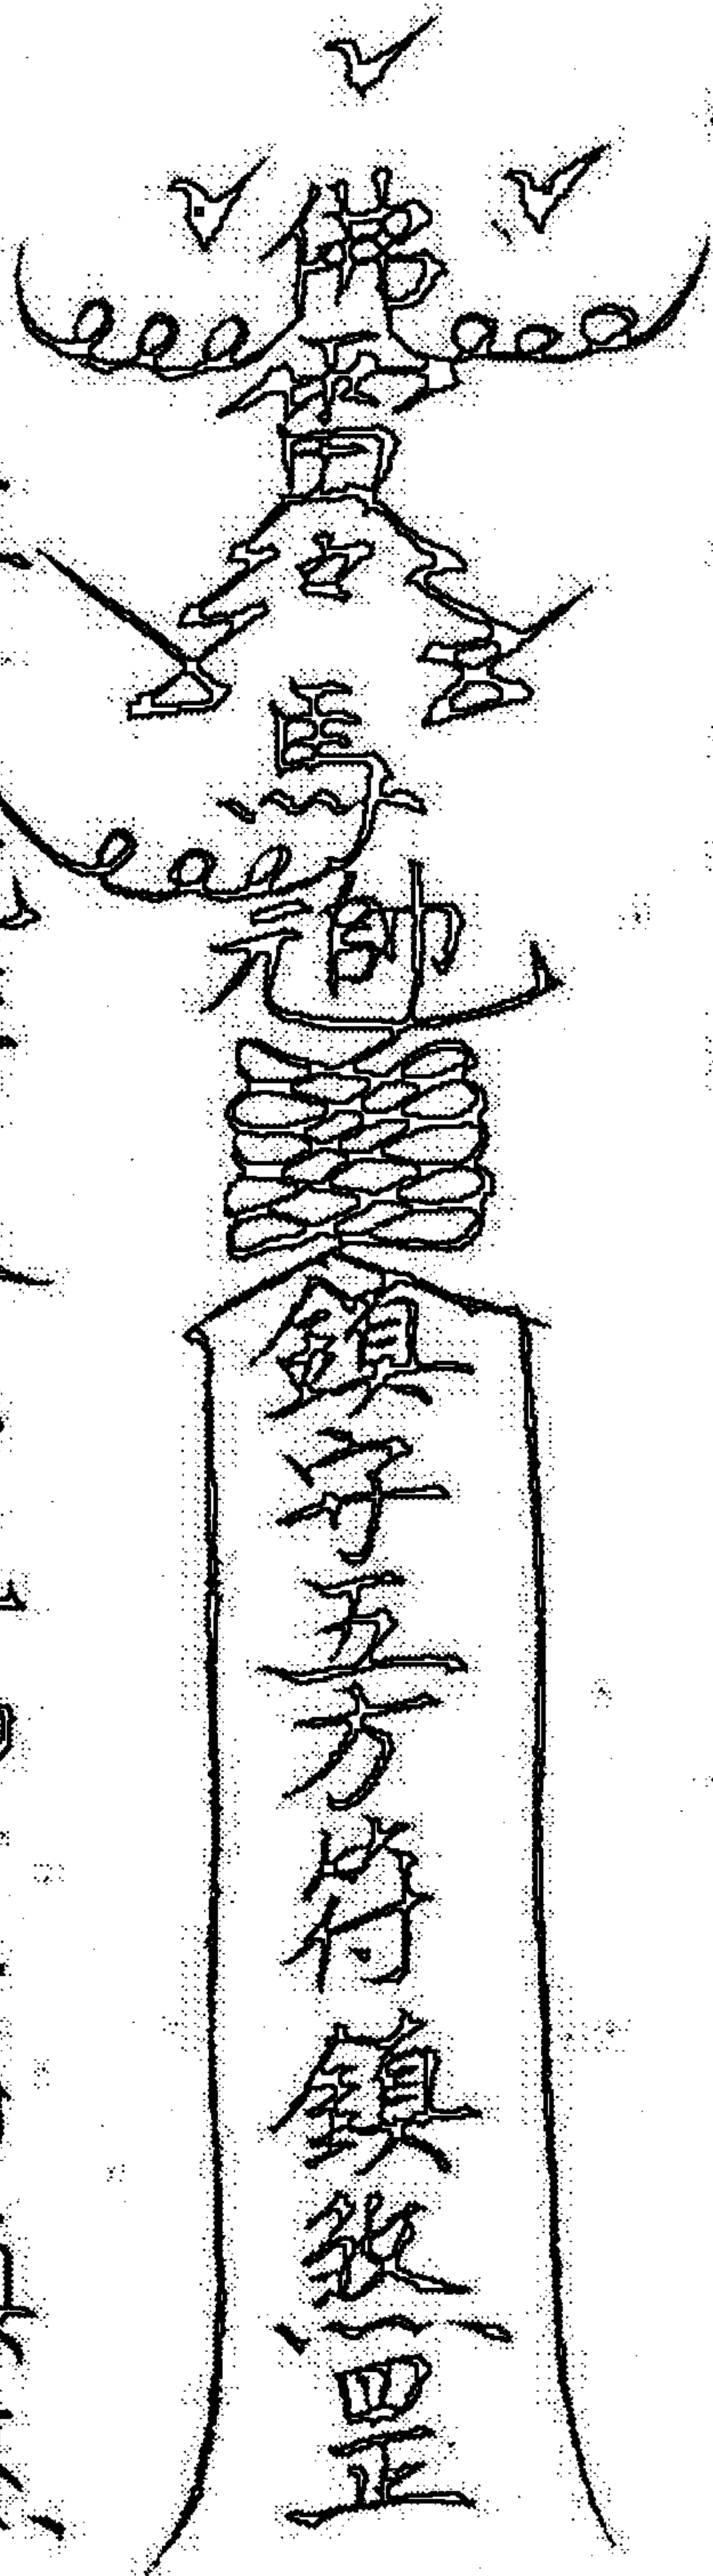 佛
雷
令
馬
元帥
鎮守五方符鎮煞罡